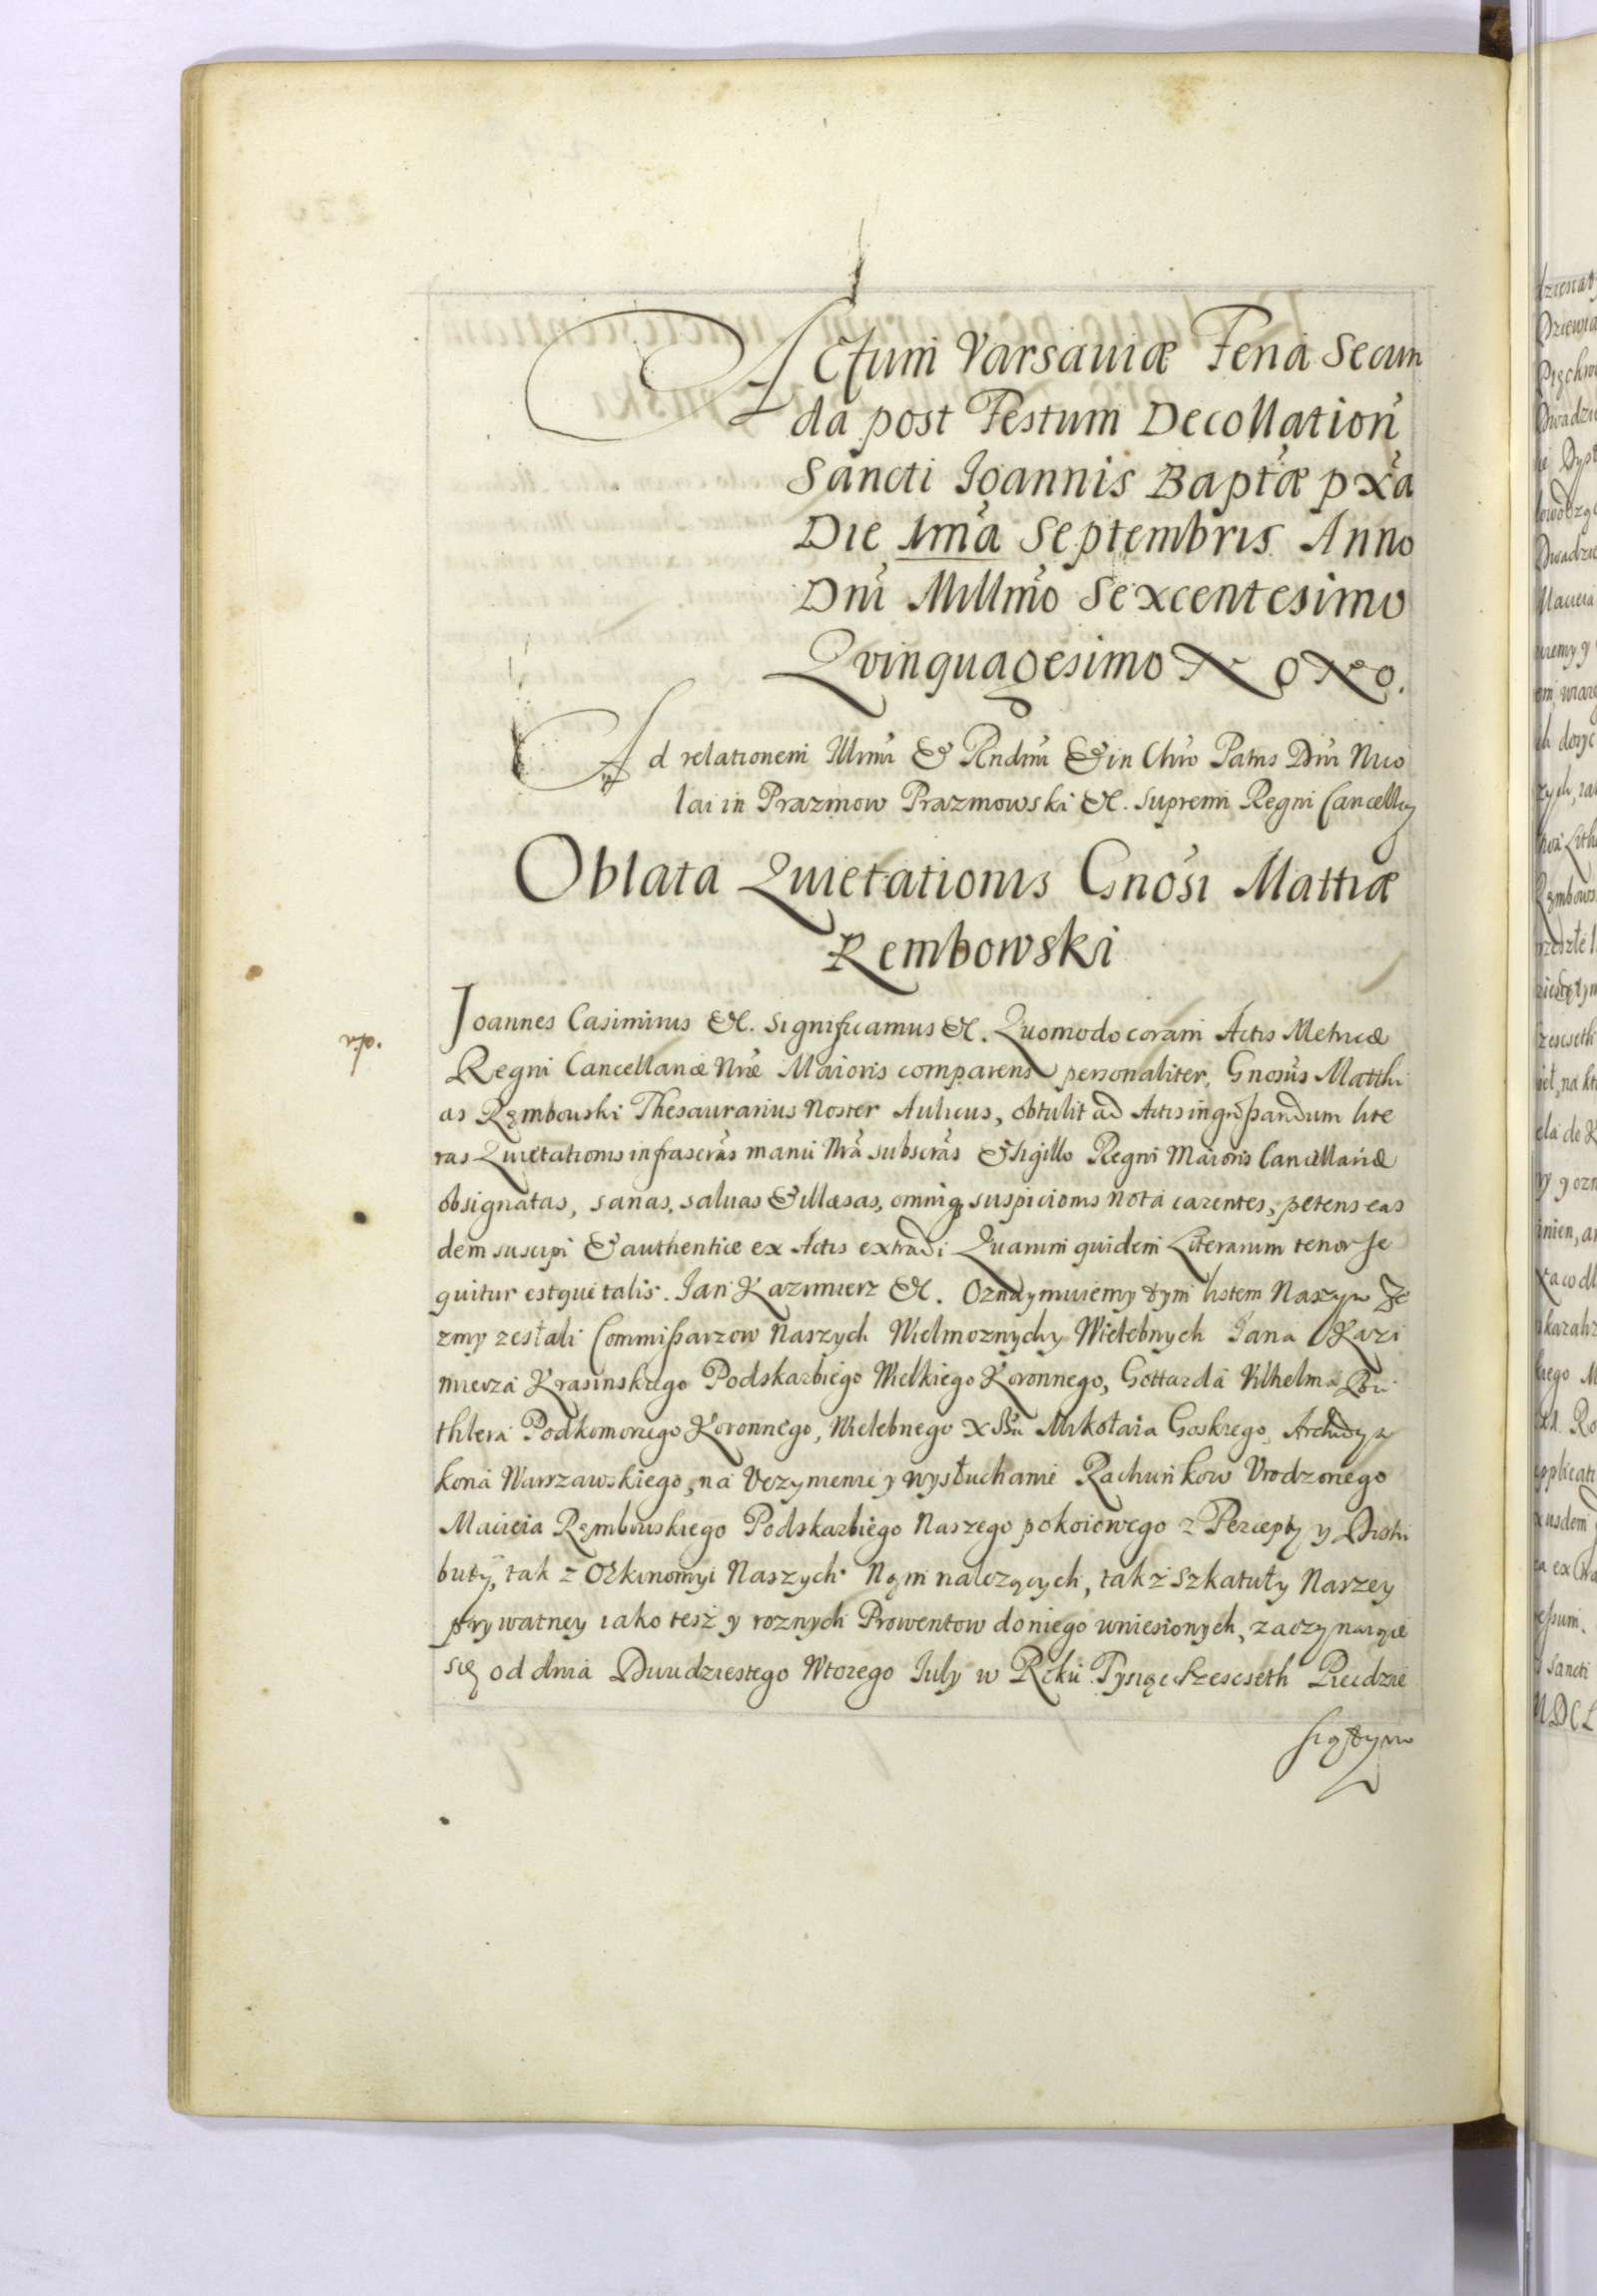 Actum Varsauiæ Feria Secun
da post Festum Decollation̄
Sancti Joannis Bapt̃æ px̃a
Die 1mã Septembris Anno
Dnĩ Millmõ Sexcentesimo
Qvinquagesimo Nono.
Ad relationem Illmĩ & Rndmĩ & in Chrõ Patris Dnĩ Nico
lai in Prazmow Prazmowski &c. Supremi Regni Cancellrÿ
Oblata Quietationis Gnõsi Mattiæ
Rembowski
Joannes Casimirus &c. Significamus &c. Quomodo coram Actis Metricæ
Regni Cancellariæ Nrãe Maioris comparens personaliter, Gnosũs Matthi
as Ręmbowski Thesaurarius Noster Aulicus, obtulit ad Actis ingrõssandum lite
ras Quietationis infrascrãs manu Nrã subscrãs & sigillo Regni Maioris Cancellariæ
obsignatas, sanas, saluas & illæsas, omniq; suspicionis nota carentes, petens eas
dem suscipi & authentice ex Actis extradi Quarum quidem Literarum tenor se
quitur estque talis. Jan Kazimierz &c. Oznaymuiemy tym listem Naszym Ze
zmy zesłali Commissarzow Naszych Wielmoznych y Wielebnych Jana Kazi
mierza Krasinskiego Podskarbiego Wielkiego Koronnego, Gottarda Vilhelma Bu
thlera Podkomorzego Koronnego, Wielebnego Mikołaia Goskiego, Archidya
kona Warszawskiego, na Vczynienie y wysłuchanie Rachunkow Vrodzonego
Macieia Ręmbowskiego Podskarbiego Naszego pokoiowego z Percepty y Distri
buty, tak z Oekonomyi Naszych Nąm nalezących, tak z Szkatuły Naszey
prywatney iako tesz y roznych Prowentow do niego wniesionych, zaczynaiącе
się od dnia Dwudziestego Wtorego July w Roku Tysiąc Szescseth Piecdzie
siątym